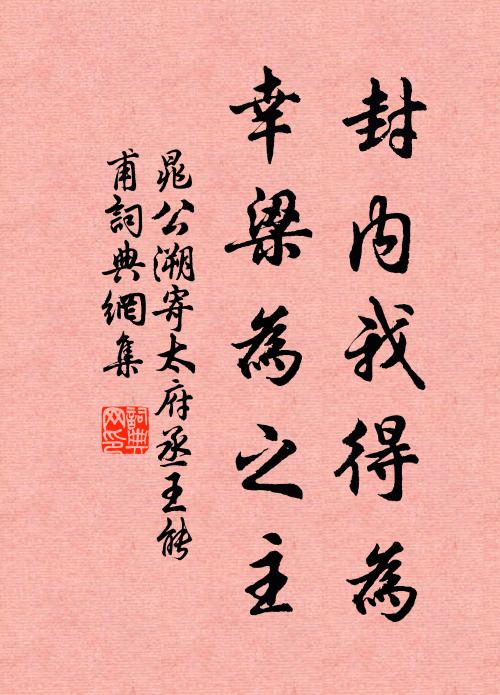 封内我得為
幸梁為之主
晁公溯寄太府丞王能
甫詞典網集
詞典網印